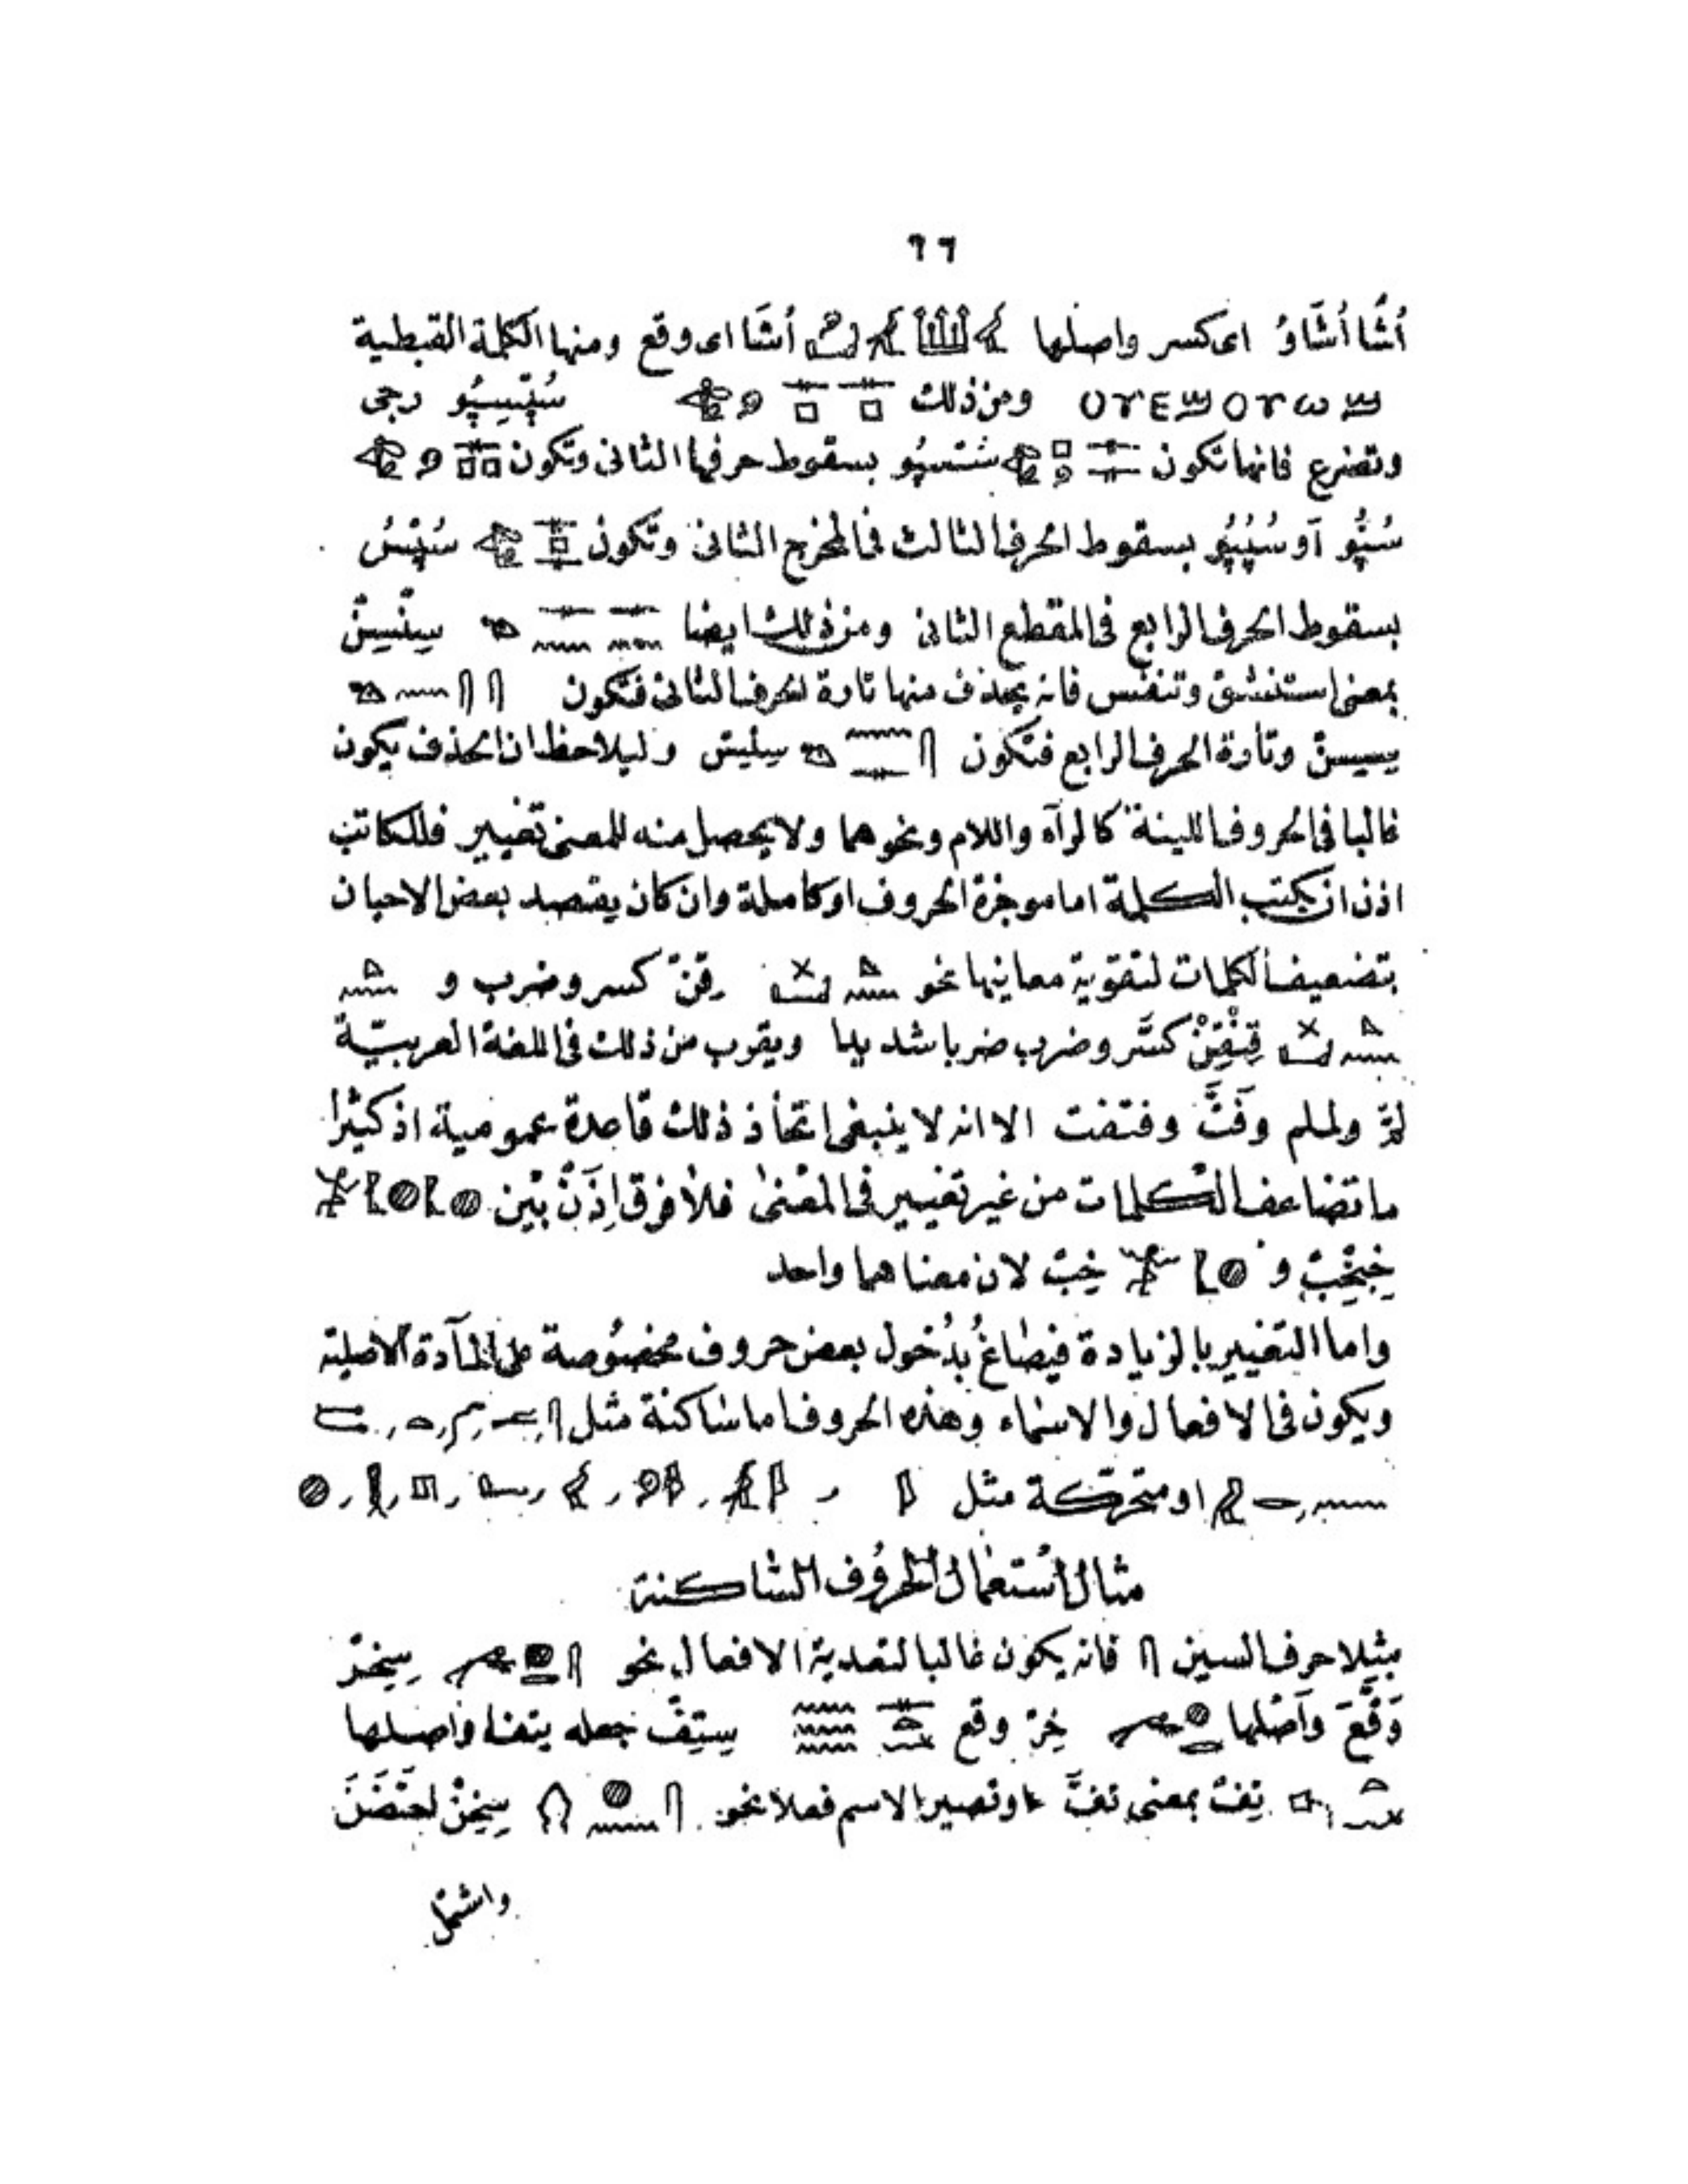 ٦٦
أُشَّا أُشَّاوُ اى كسر واصلها أُشَا اى وقع ومنها الكلمة القبطية
ⲟⲩⲉϣⲟⲩⲱϣ ومن ذلك رجى
وتضرع فانها تكون شتسپُو بسقوط حرفها الثانى وتكون
سُپُّو أو سُپُپُو بسقوط الحرف الثالث فى المخرج الثانى وتكون سُپْسُ
بسقوط الحرف الرابع فى المقطع الثانى ومن ذلك ايضا سِنْسِنْ
بمعنى استنشق وتنفس فانه يحذف منها تارة الحرف الثانى فتكون
سيسن وتارة الحرف الرابع فتكون وليلاحظ ان الحذف يكون
غالبا فى الحروف اللينة كالرآء واللام ونحوهما ولا يحصل منه للمعنى تغيير فللكاتب
اذن ان يكتب الكلمة اما موجزة الحروف او كاملة وان كان يقتصد بعض الاحيان
بتضعيف الكلمات لتقوية معانيها نحو قِنْ كسر وضرب و
قِنْقِنْ كسَّر وضرب ضربا شديدا ويقرب من ذلك فى اللغة العربيّة
لمّ ولملم وفَتَّ وفتفت الا انه لا ينبغى اتخاذ ذلك قاعدة عمومية اذ كثيرا
ما تتضاعف الكلمات من غير تغيير فى المعنى فلا فرق اِذَنْ بين
خِبْخِبْ و خِبْ لان معناهما واحد
واما التغيير بالزيادة فيصاغ بدُخول بعض حروف مخصُوصة على المآدة الاصلية
ويكون فى الافعال والاسماء وهذه الحروف اما ساكنة مثل
او متحرّكة مثل
مثال استعمال الحروف الساكنة
مثلا حرف السين فانه يكون غالبا لتعدية الافعال نحو سِخِرْ
وَقَّعَ وأصلها خِرْ وقع سِتِفْ جعله يتف واصلها
تِفْ بمعنى تفَّ او تصير الاسم فعلا نحو سِخِنْ احتَضَنَ
واشتمل